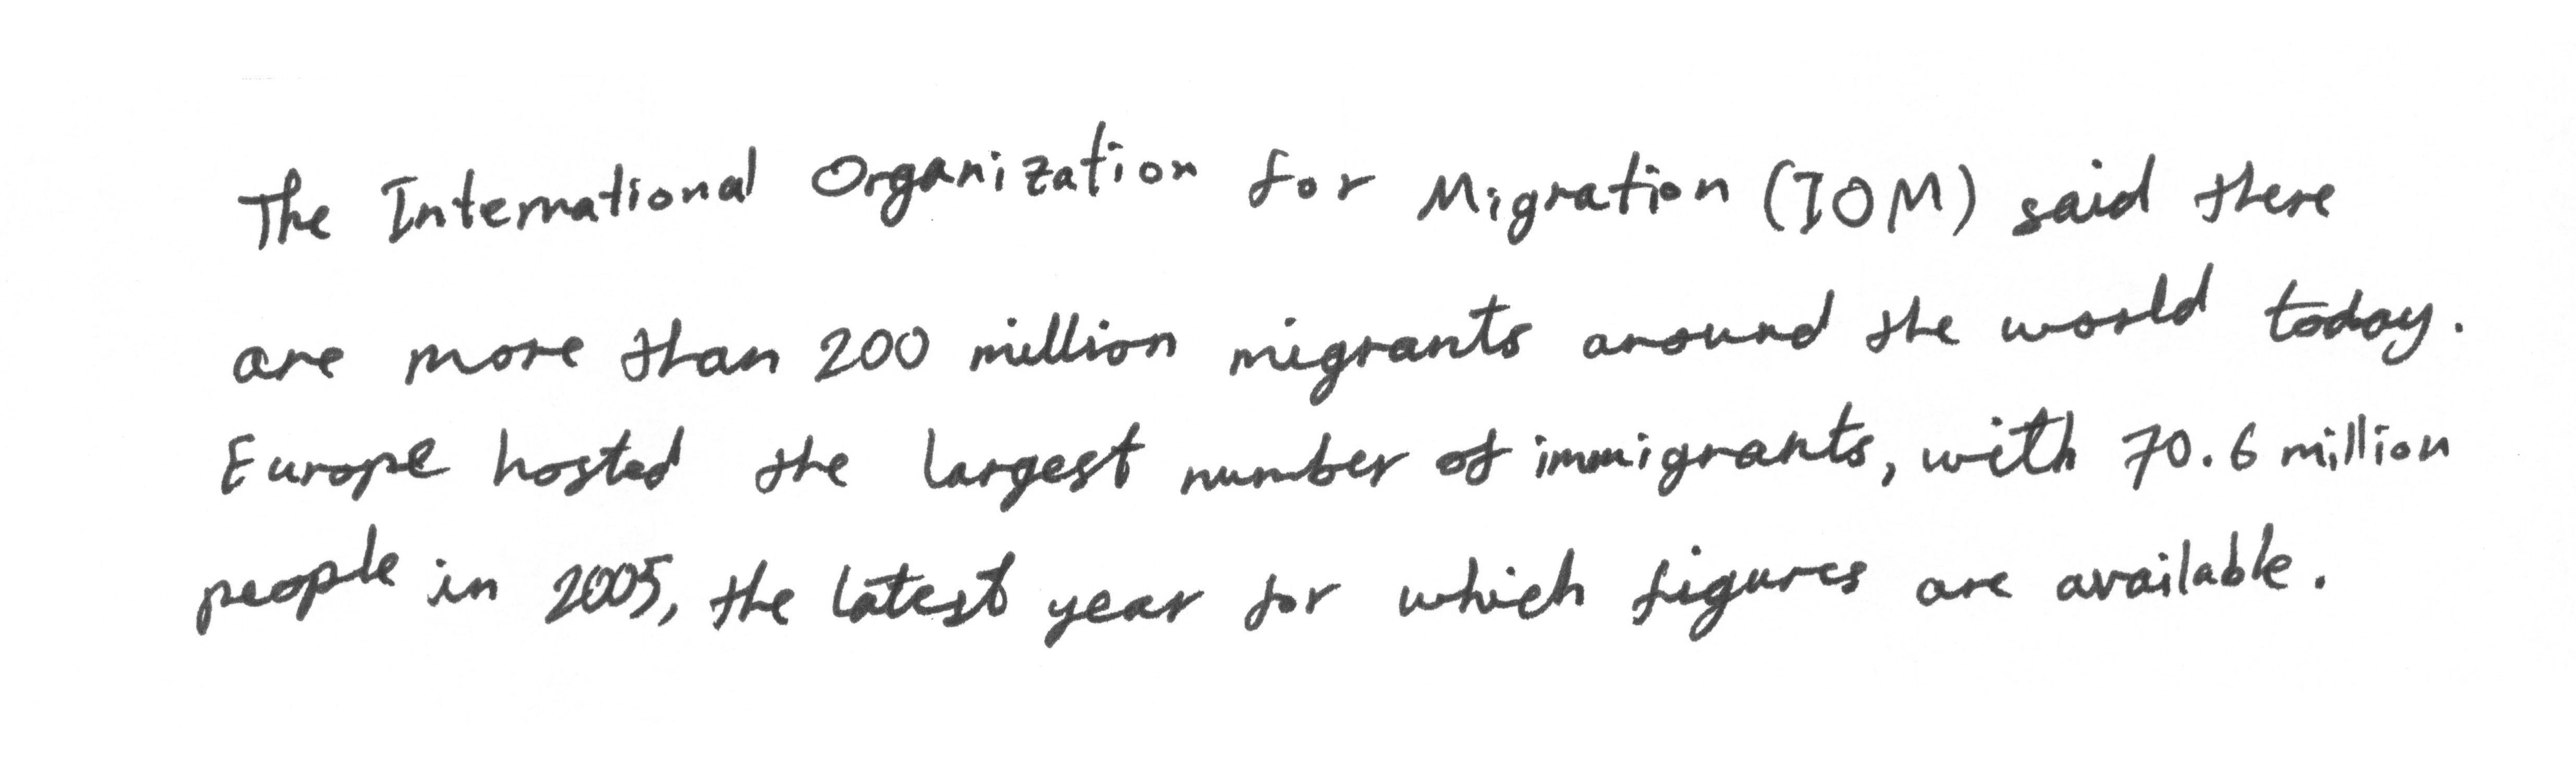 The International Organization for Migration (IOM) said there
are more than 200 million migrants around the world today.
Europe hosted the largest number of immigrants, with 70.6 million
people in 2005, the latest year for which figures are available.